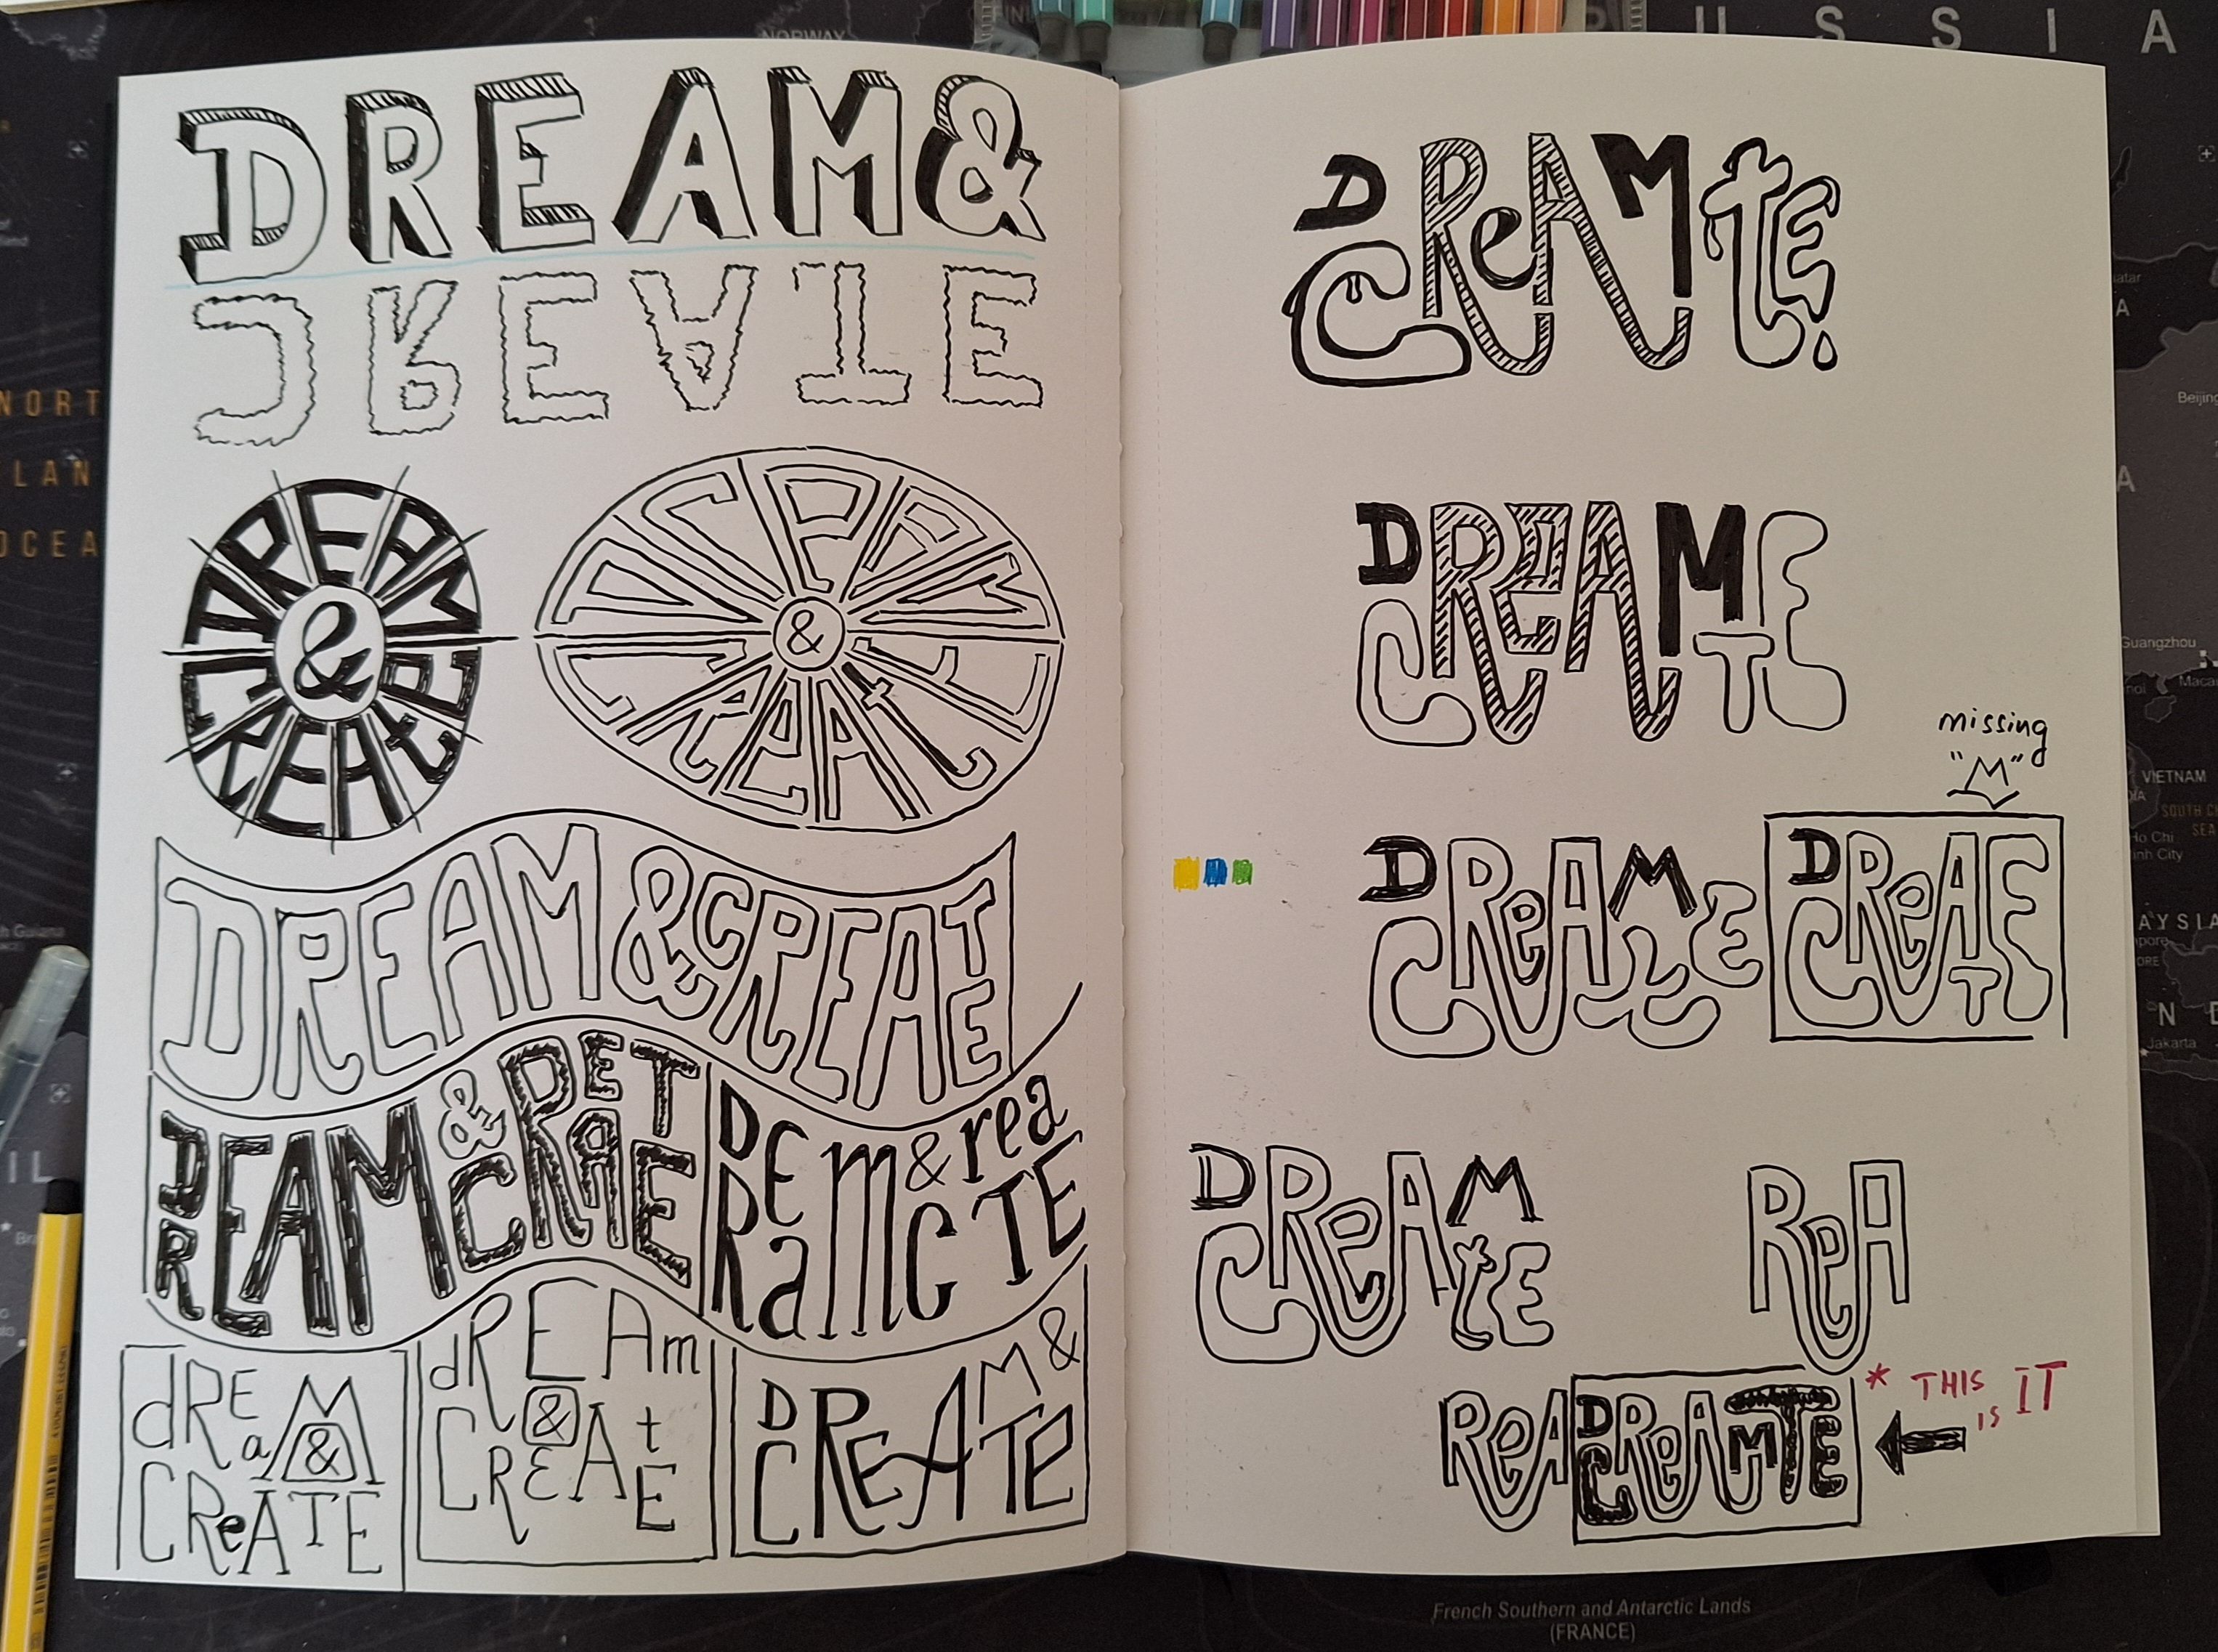 DREAM&
CREATE
DREAM
&
CREAtE
DREAM
&
CREAt
DREAM&CREATE
DREAM & CREATE
DREam & reaCTE
dREaM
&
CREATE
dREAm
&
CREAtE
DREAM &
CREATE
DCReAMtE
DCREAMTE
missing
"M"
DCReAMtE
DCReATE
DCReAMtE
ReA
ReA
DCReAMTE
* THIS
IS IT
NORWAY
RUSSIA
NORT
LAN
OCEA
Beijing
Guangzhou
VIETNAM
Ho Chi
inh City
Jakarta
French Southern and Antarctic Lands
(FRANCE)